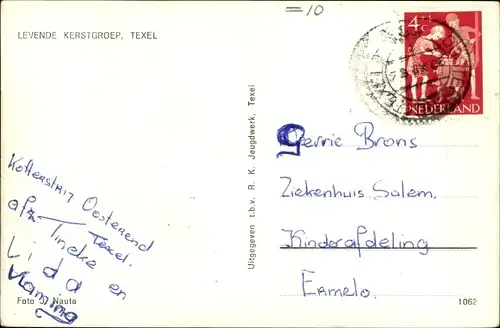 =10
LEVENDE KERSTGROEP, TEXEL
4 c
NEDERLAND
Uitgegeven t.b.v. R. K. Jeugdwerk, Texel
Gerrie Brons
Ziekenhuis Salem.
Kinderafdeling
Ermelo.
Oosterend
Texel.
afz. Ineke
Lida en
Vlaming
Foto J. Nauta
1062